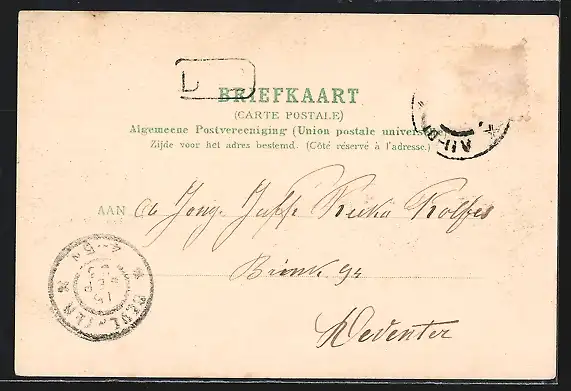 D
BRIEFKAART
(CARTE POSTALE)
Algemeene Postvereeniging (Union postale univers
Zijde voor het adres bestemd. (Côté réservé à l'adresse.)
AAN de Jong. Juffr Rolfes
Brink 94
Deventer